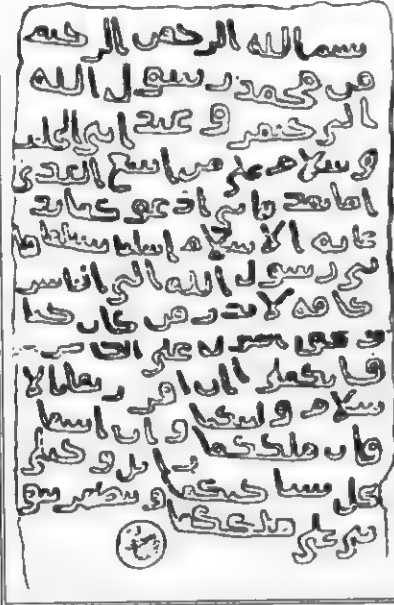 بسم الله الرحمن الرحيم
من محمد رسول الله
الى جيفر و عبد ابني الجلند
و سلام على من اتبع الهدى
اما بعد فاني ادعوكما بد
عاية الاسلام اسلما تسلما فا
ني رسول الله الى الناس
كافة لانذر من كان حيا
و يحق القول على الكافرين
فانكما ان اقررتما بالا
سلام وليتكما و ان ابيتما
فان ملككما زائل و خيلي
تحل بساحتكما و تظهر نبو
تي على ملككما